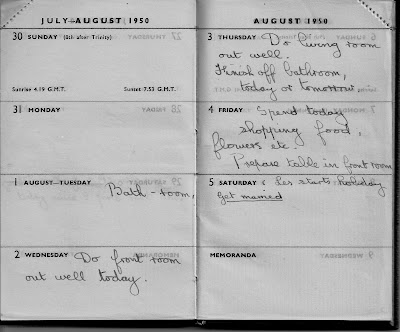 JULY-AUGUST 1950
30 SUNDAY (8th after Trinity)
Sunrise 4.19 G.M.T. Sunset 7.53 G.M.T.
31 MONDAY
1 AUGUST-TUESDAY Bath-room,
2 WEDNESDAY Do front room
out well today.
AUGUST 1950
3 THURSDAY Do living room
out well.
Finish off bathroom,
today or tomorrow
4 FRIDAY Spend today
shopping food,
flowers etc.
Prepare table in front room
5 SATURDAY Les starts holiday
get married
MEMORANDA